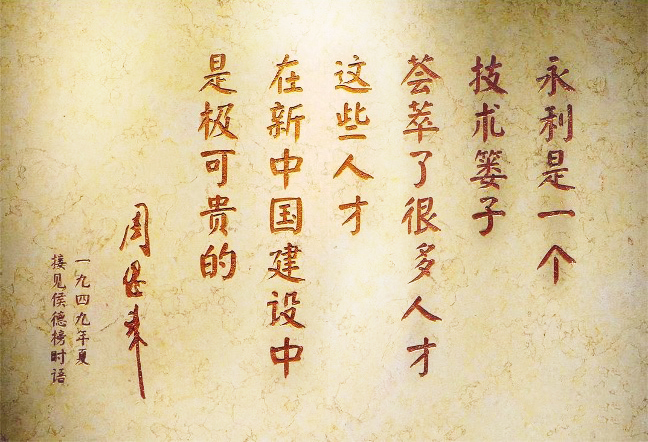 永利是一个
技术篓子
荟萃了很多人才
这些人才
在新中国建设中
是极可贵的
周恩来
一九四九年夏
接见侯德榜时语